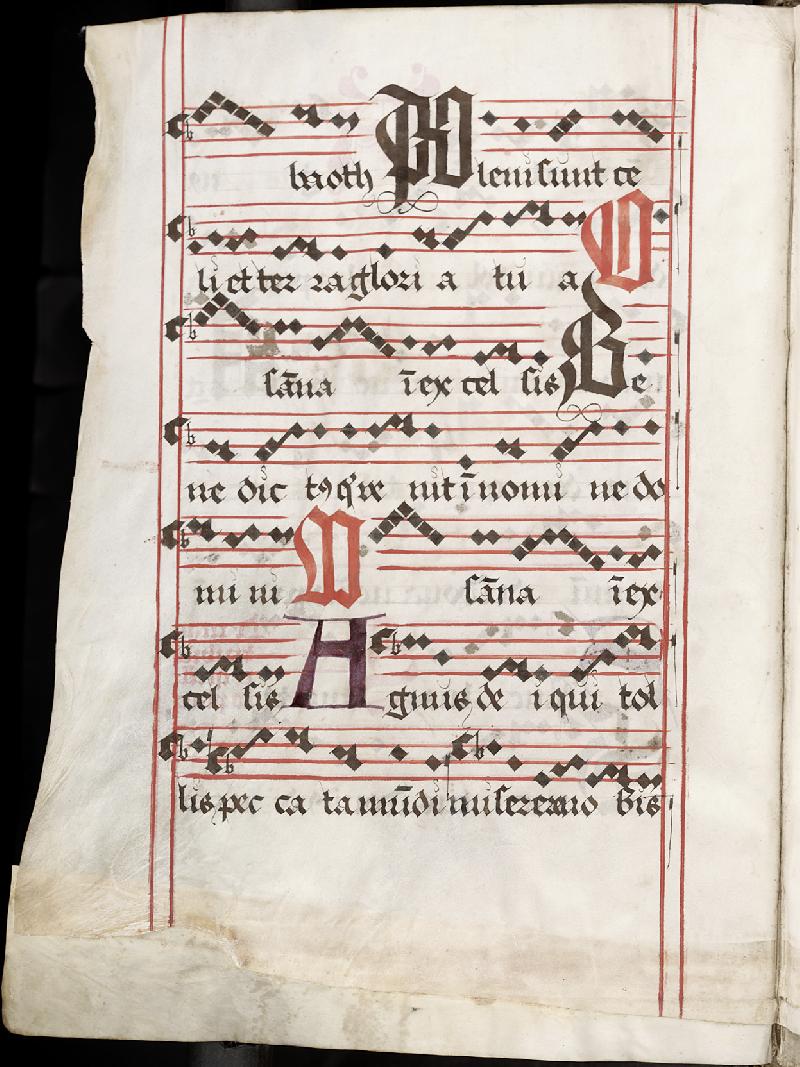 baoth Pleni sunt ce
li et ter ra glori a tu a O
sāna ī ex cel sis Be
ne dic tꝯ q̄ ve nit ī nomi ne do
mi ni O sāna ī ex
cel sis Agnus de i qui tol
lis pec ca ta mūdi miserere no bis